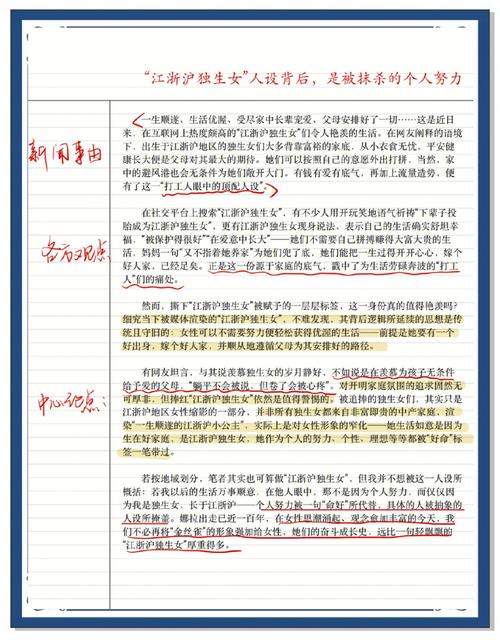 “江浙沪独生女”人设背后，是被抹杀的个人努力
新闻事由
一生顺遂、生活优渥、受尽家中长辈宠爱、父母安排好了一切……这是近日
来，在互联网上热度颇高的“江浙沪独生女”们令人艳羡的生活。在网友阐释的语境
下，出生于江浙沪地区的独生女们大多背靠富裕的家庭，从小衣食无忧，平安健
康长大便是父母对其最大的期待。她们可以按照自己的意愿外出打拼，当然，家
中的避风港也会无条件为她们敞开大门。有钱有爱有底气，再加上流量造势，便
有了这一“打工人眼中的顶配人设”。
各方观点
在社交平台上搜索“江浙沪独生女”，有不少人用开玩笑地语气祈祷“下辈子投
胎成为江浙沪独生女”，更有江浙沪独生女现身说法，表示自己的生活确实舒坦幸
福，“被保护得很好”“在爱意中长大”——她们不需要自己拼搏赚得大富大贵的生
活，妈妈一句“又不指着她养家”为她们兜了底，她们能把一生过得开开心心，嫁个
好人家，已经足矣。正是这一份源于家庭的底气，戳中了为生活劳碌奔波的“打工
人”们的痛处。
然而，撕下“江浙沪独生女”被赋予的一层层标签，这一身份真的值得艳羡吗？
细究当下被媒体渲染的“江浙沪独生女”，不难发现，其背后逻辑所延续的思想是传
统且守旧的：女性可以不需要努力便轻松获得优渥的生活——前提是她要有一个
好出身，嫁个好人家，并顺从地遵循父母为其安排好的路径。
中心论点：
有网友坦言，与其说羡慕江浙沪独生女的岁月静好，不如说是在羡慕为孩子无条件
给予爱的父母，“躺平不会被说，但卷了会被心疼”。对开明家庭氛围的追求固然无
可厚非，但捧红“江浙沪独生女”依然是值得警惕的。被追捧的独生女们，其实只是
江浙沪地区女性缩影的一部分，并非所有独生女都来自非富即贵的中产家庭，渲
染“一生顺遂的江浙沪小公主”，实际上是对女性形象的窄化——她生活如意是因为
生在好好家庭，是江浙沪独生女，她作为个人的努力、个性、理想等等都被“好命”标
签一笔带过。
若按地域划分，笔者其实也可算做“江浙沪独生女”，但我并不想被这一人设所
概括：若我以后的生活万事顺意，在他人眼中，那不是因为个人努力，而仅仅因
为我是独生女，长于江浙沪——个人努力被一句“命好”所代替，具体的人被抽象的
人设所掩盖。娜拉出走已近一百年，在女性思潮涌起、观念愈加丰富的今天，我
们不必再将“金丝雀”的形象强加给女性，她们的奋斗成长史，远比一句轻飘飘的
“江浙沪独生女”厚重得多。